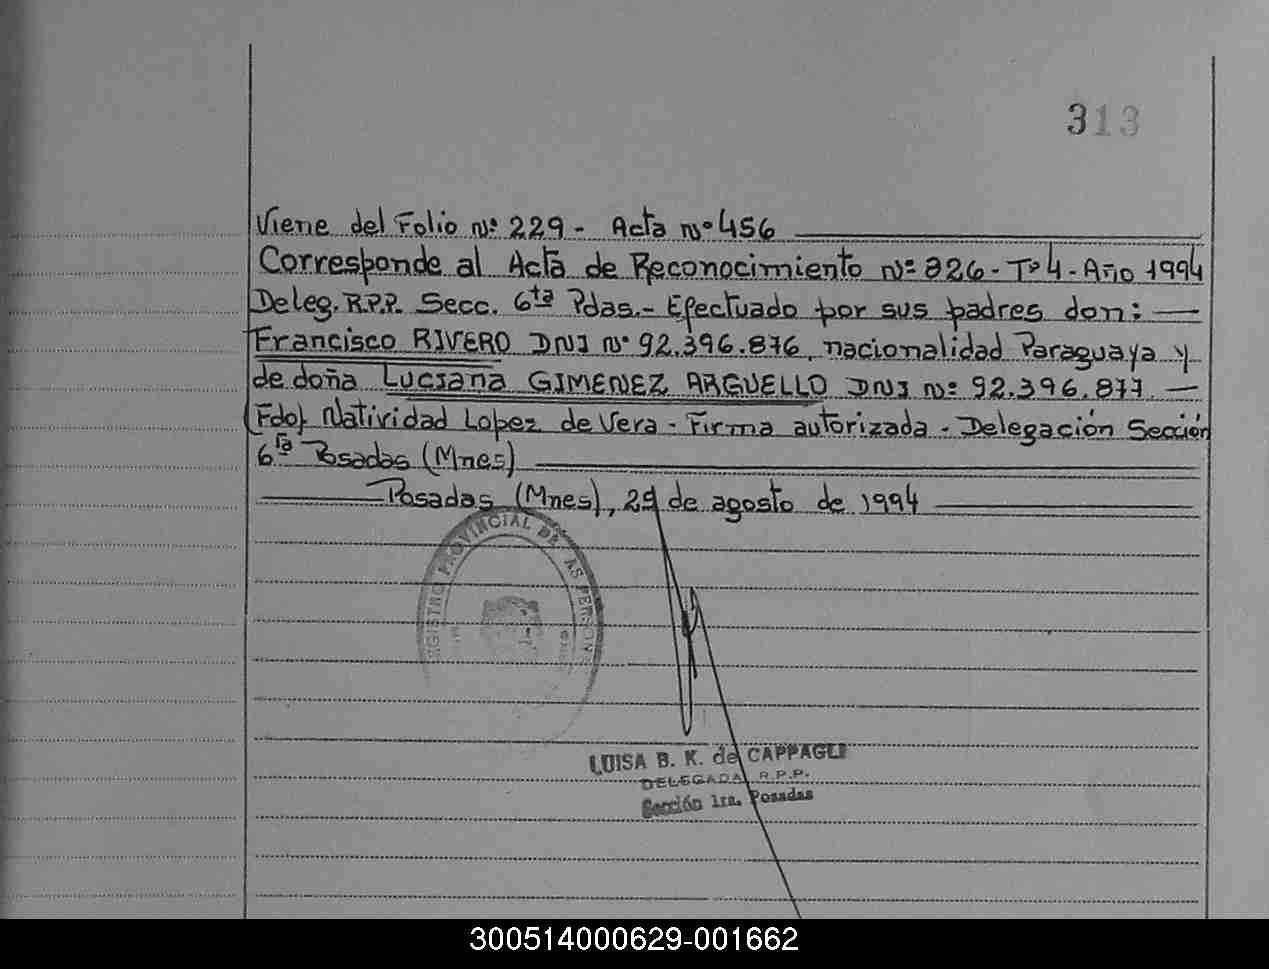 313
Viene del Folio Nº 229 - Acta nº 456
Corresponde al Acta de Reconocimiento Nº 826 - Tº 4 - Año 1994
Deleg. R.P.P. Secc. 6ta Pdas. - Efectuado por sus padres don: —
Francisco RIVERO DNI Nº 92.396.876, nacionalidad Paraguaya y
de doña Luciana GIMENEZ ARGUELLO DNI Nº 92.396.877 —
(Fdo) Natividad Lopez de Vera - Firma autorizada - Delegación Sección
6ta Posadas (Mnes)
Posadas (Mnes), 29 de agosto de 1994
REGISTRO PROVINCIAL DE LAS PERSONAS
LUISA B. K. de CAPPAGLI
DELEGADA R.P.P.
Sección 1ra. Posadas
300514000629-001662